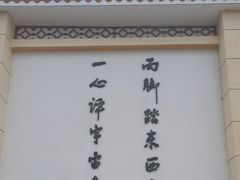 两脚踏东西
一心评宇宙